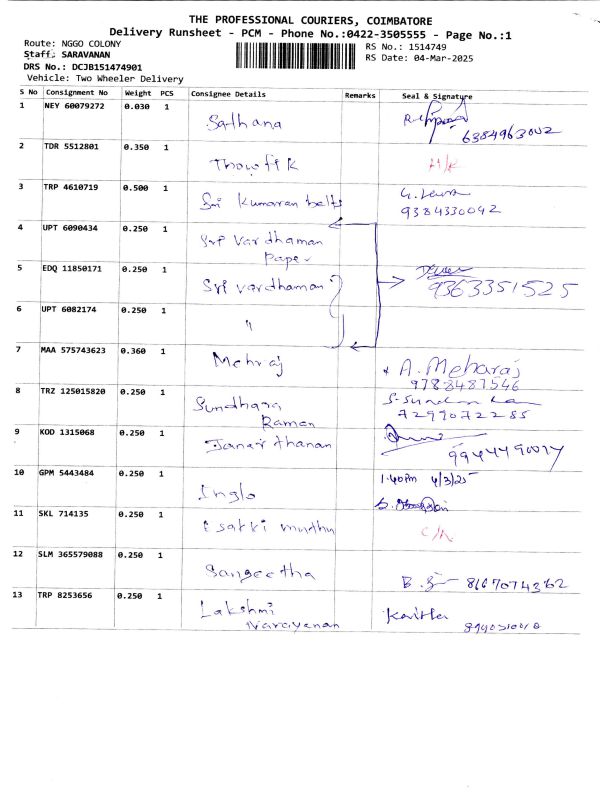 THE PROFESSIONAL COURIERS, COIMBATORE
Delivery Runsheet - PCM - Phone No.:0422-3505555 - Page No.:1
Route: NGGO COLONY
RS No.: 1514749
Staff: SARAVANAN
RS Date: 04-Mar-2025
DRS No.: DCJB151474901
Vehicle: Two Wheeler Delivery
S No Consignment No Weight PCS Consignee Details Remarks Seal & Signature
1 NEY 60079272 0.030 1
Sathana
6384963002
2 TDR 5512801 0.350 1
Thowfik
3 TRP 4610719 0.500 1
Sri Kumaran belts
9384330042
4 UPT 6090434 0.250 1
Sri Vardhaman
Paper
5 EDQ 11850171 0.250 1
Sri vardhaman
9363351525
6 UPT 6082174 0.250 1
"
7 MAA 575743623 0.360 1
Mehraj
A. Meharaj
9788487546
8 TRZ 125015820 0.250 1
Sundhara
Raman
7299072285
9 KOD 1315068 0.250 1
Janarthanan
10 GPM 5443484 0.250 1
1:40pm 4/3/25
Inglo
11 SKL 714135 0.250 1
Esakki mudhu
12 SLM 365579088 0.250 1
Sangeetha
13 TRP 8253656 0.250 1
Lakshmi
Narayanan